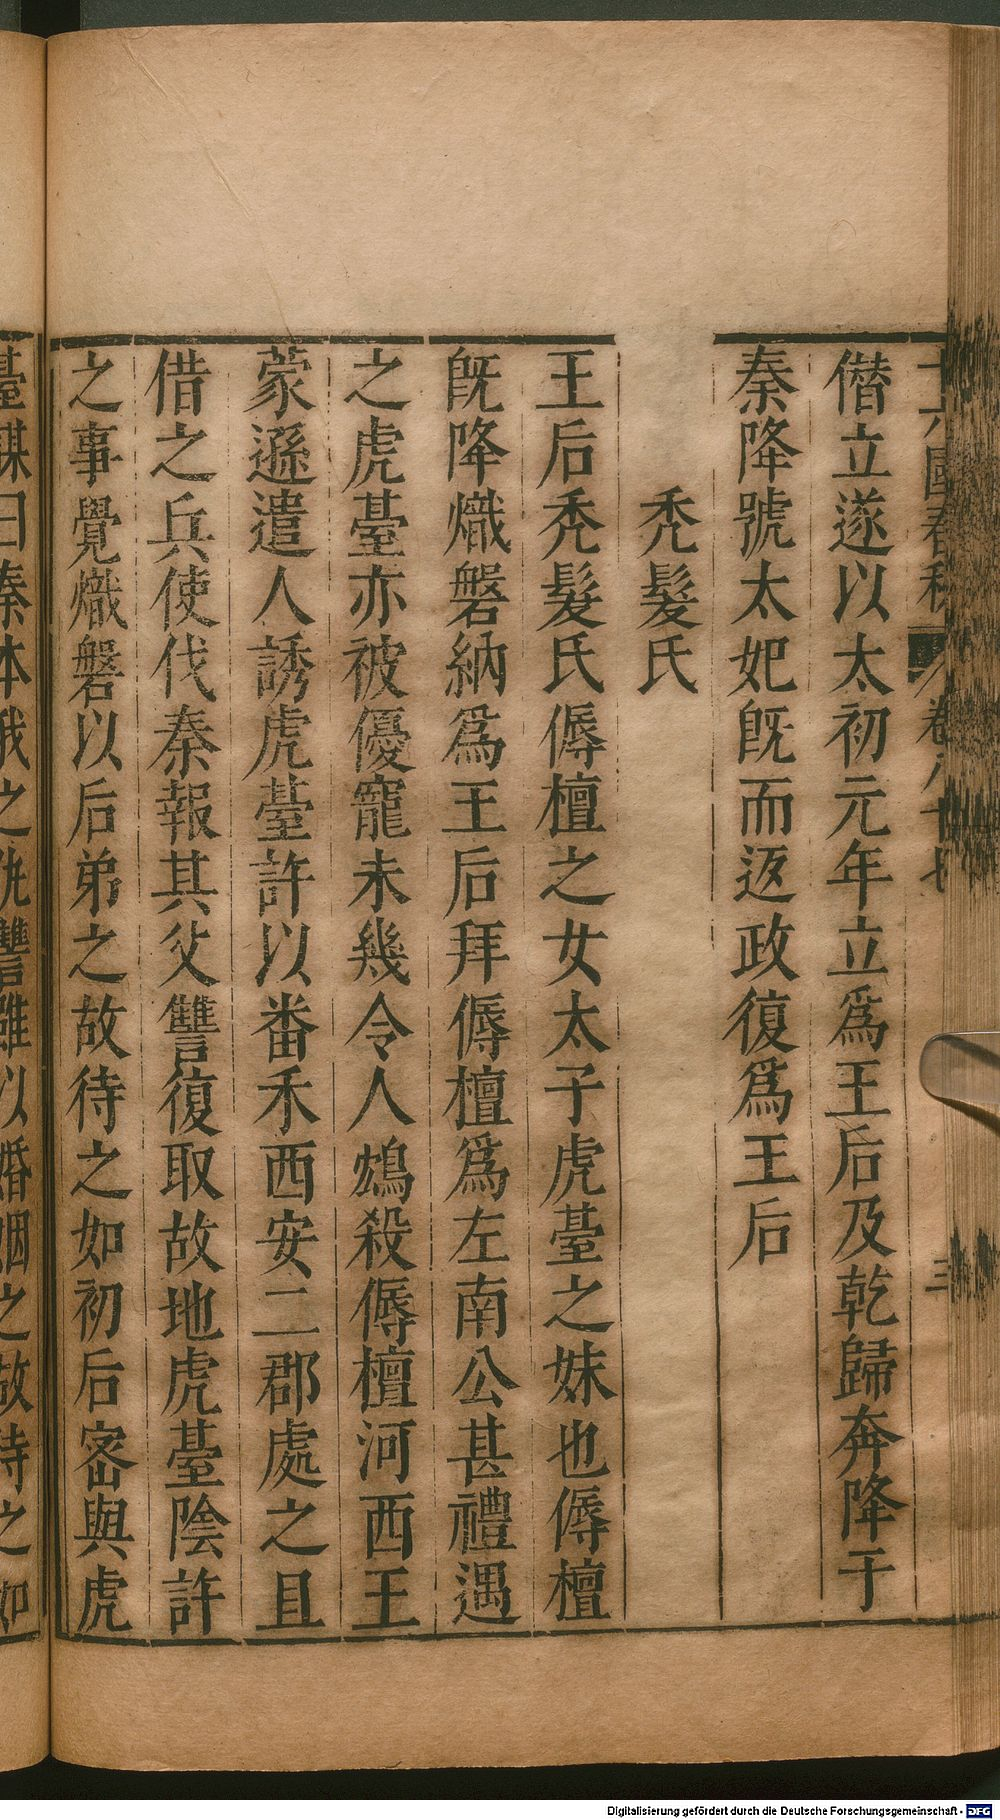 十六國春秋 卷八十七 三
僭立遂以太初元年立爲王后及乾歸奔降于
秦降號太妃旣而返政復爲王后
禿髮氏
王后禿髮氏傉檀之女太子虎臺之妹也傉檀
旣降熾磐納爲王后拜傉檀爲左南公甚禮遇
之虎臺亦被優寵未幾令人鴆殺傉檀河西王
蒙遜遣人誘虎臺許以番禾西安二郡處之且
借之兵使伐秦報其父讐復取故地虎臺陰許
之事覺熾磐以后弟之故待之如初后密與虎
臺謀曰秦本我之仇讐雖以婚姻之故待之如
Digitalisierung gefördert durch die Deutsche Forschungsgemeinschaft - DFG